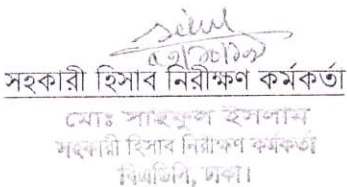 সহকারী হিসাব নিরীক্ষণ কর্মকর্তা
মোঃ সাইফুল ইসলাম
সহকারী হিসাব নিরীক্ষণ কর্মকর্তা
বিএডিসি, ঢাকা।